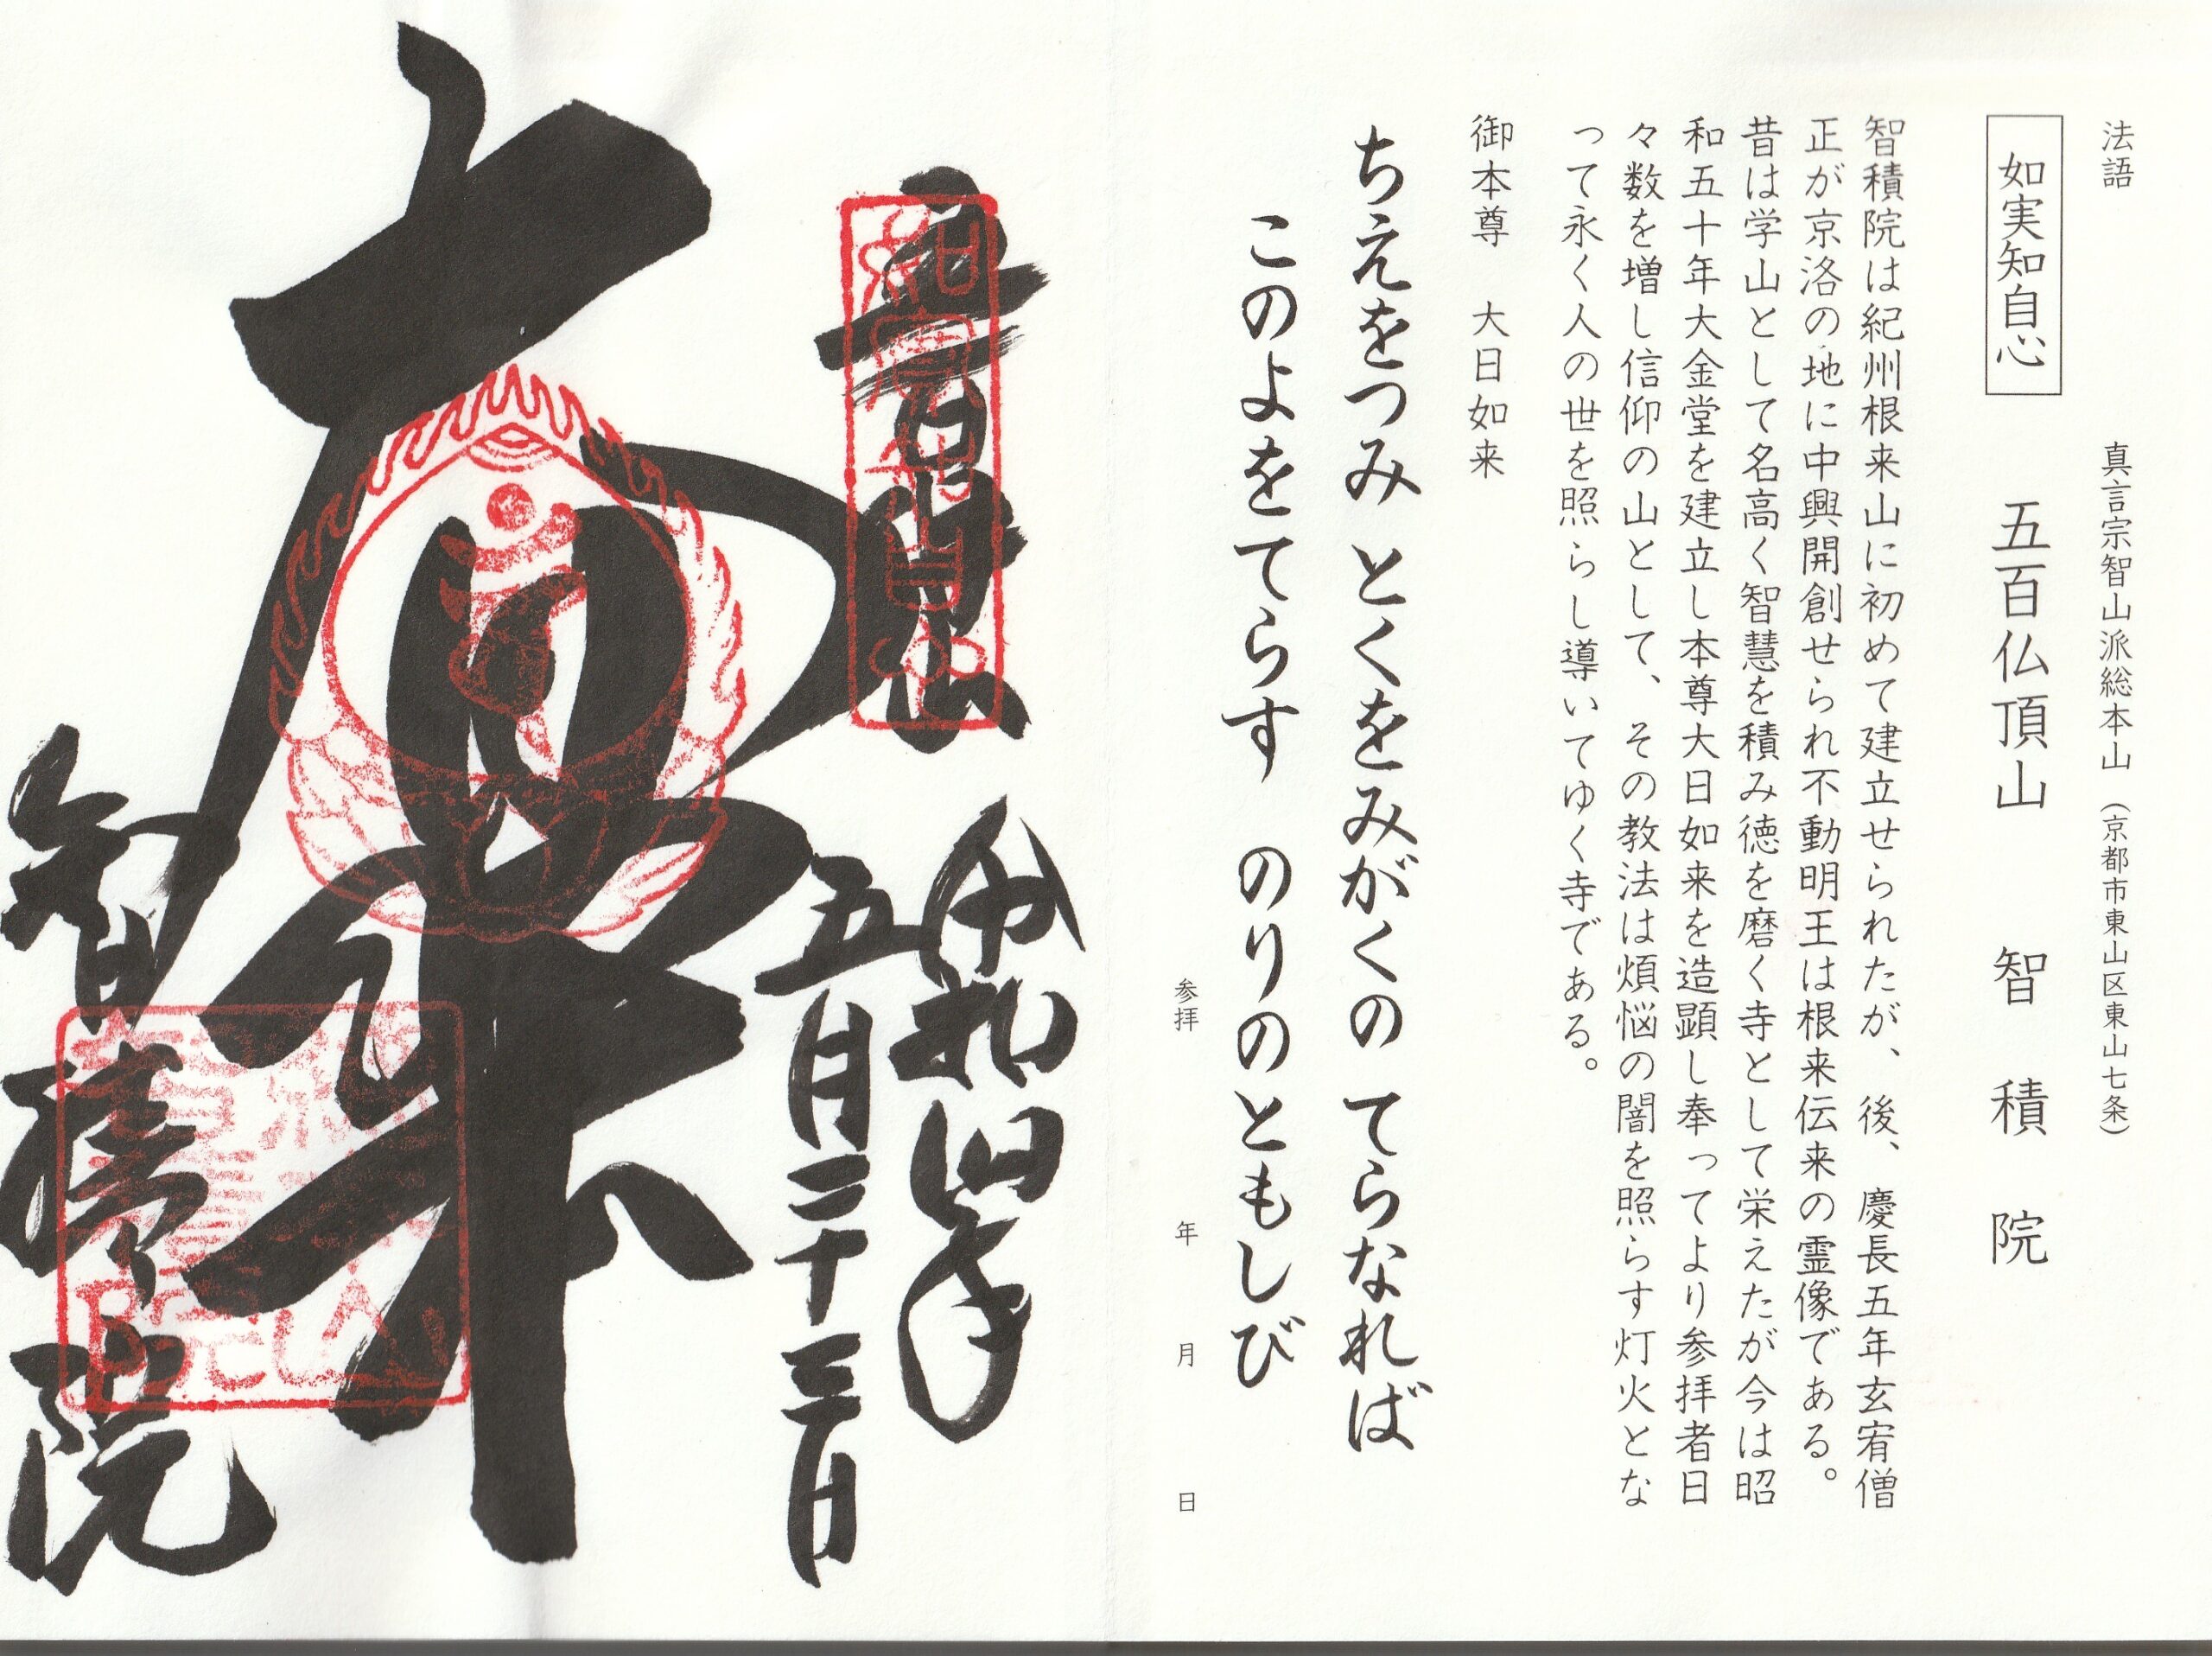 法語
真言宗智山派総本山（京都市東山区東山七条）
如実知自心
五百仏頂山 智積院
智積院は紀州根来山に初めて建立せられたが、後、慶長五年玄宥僧
正が京洛の地に中興開創せられ不動明王は根来伝来の霊像である。
昔は学山として名高く智慧を積み徳を磨く寺として栄えたが今は昭
和五十年大金堂を建立し本尊大日如来を造顕し奉ってより参拝者日
々数を増し信仰の山として、その教法は煩悩の闇を照らす灯火とな
って永く人の世を照らし導いてゆく寺である。
御本尊 大日如来
ちえをつみ とくをみがくの てらなれば
このよをてらす のりのともしび
参拝 年 月 日
如実知自心
令和四年
五月二十三日
大日如来
智積院